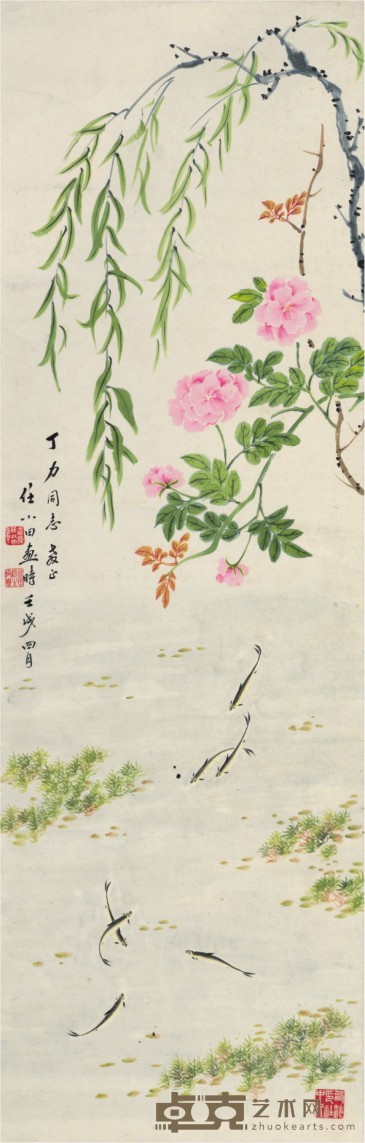 丁力同志教正
任小田画时壬戌四月
卓克艺术网
zhuokearts.com